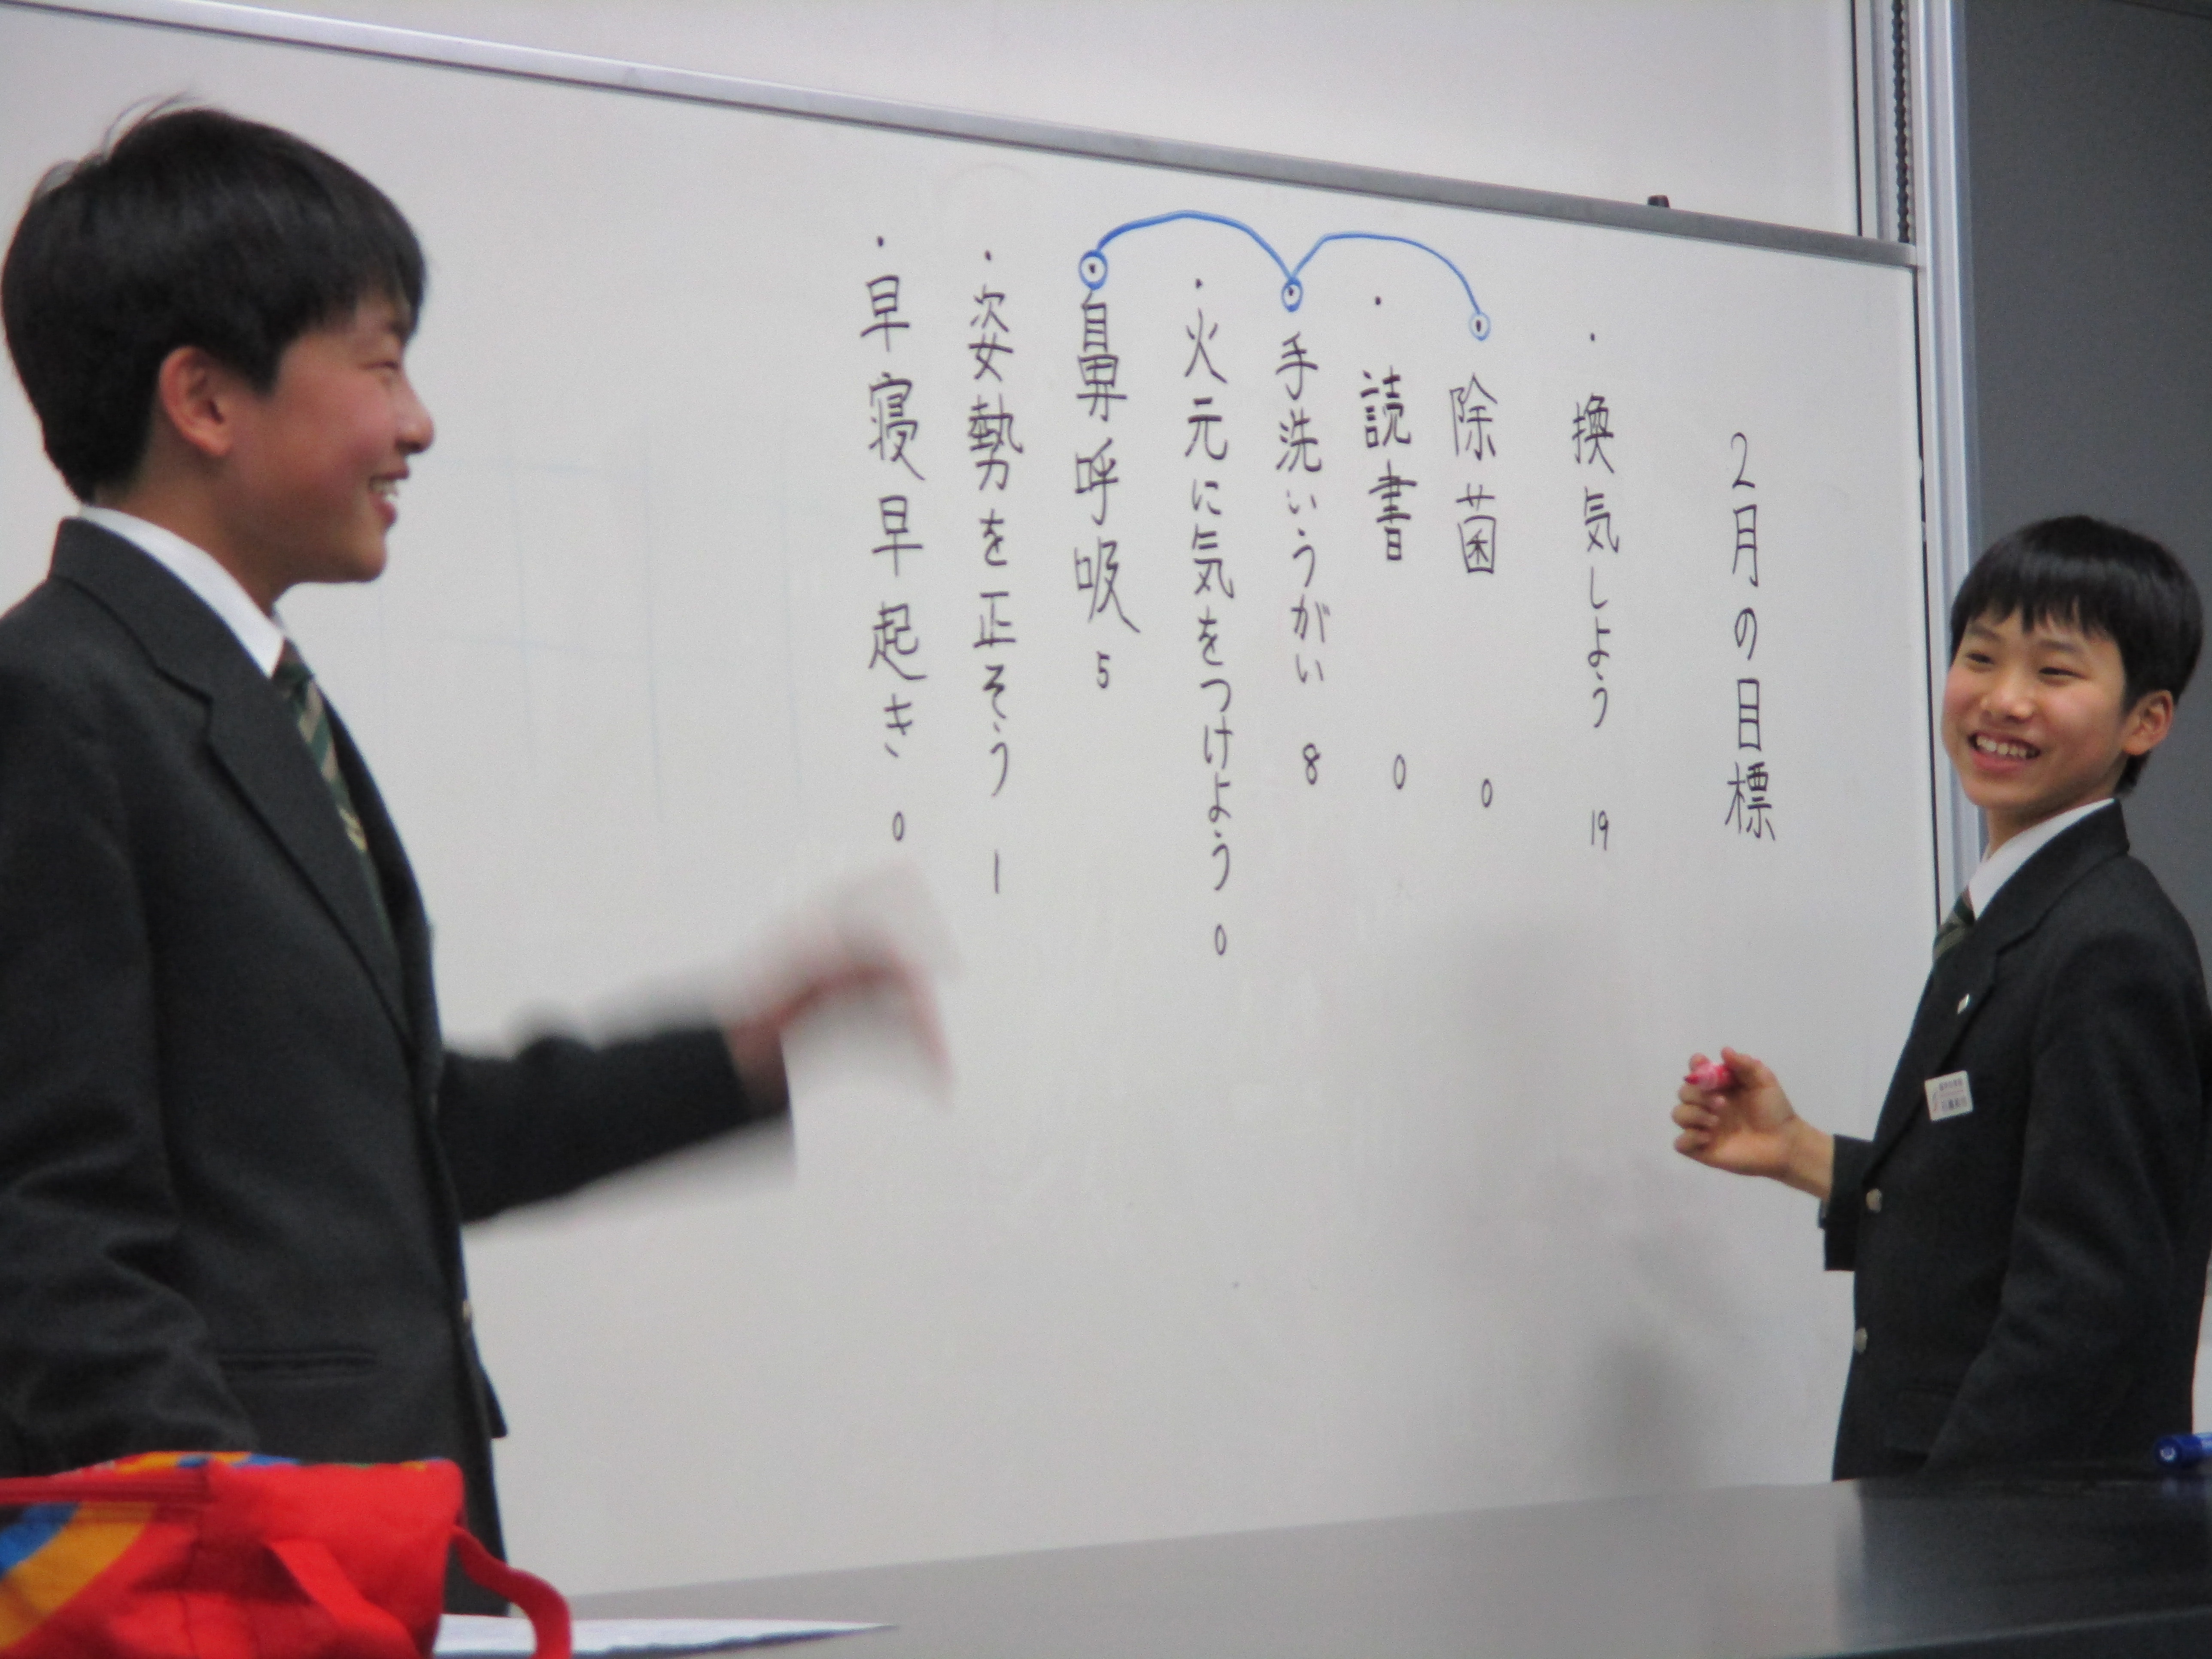 2月の目標
・換気しよう 19
・除菌 0
・読書 0
・手洗いうがい 8
・火元に気をつけよう 0
・鼻呼吸 5
・姿勢を正そう 1
・早寝早起き 0